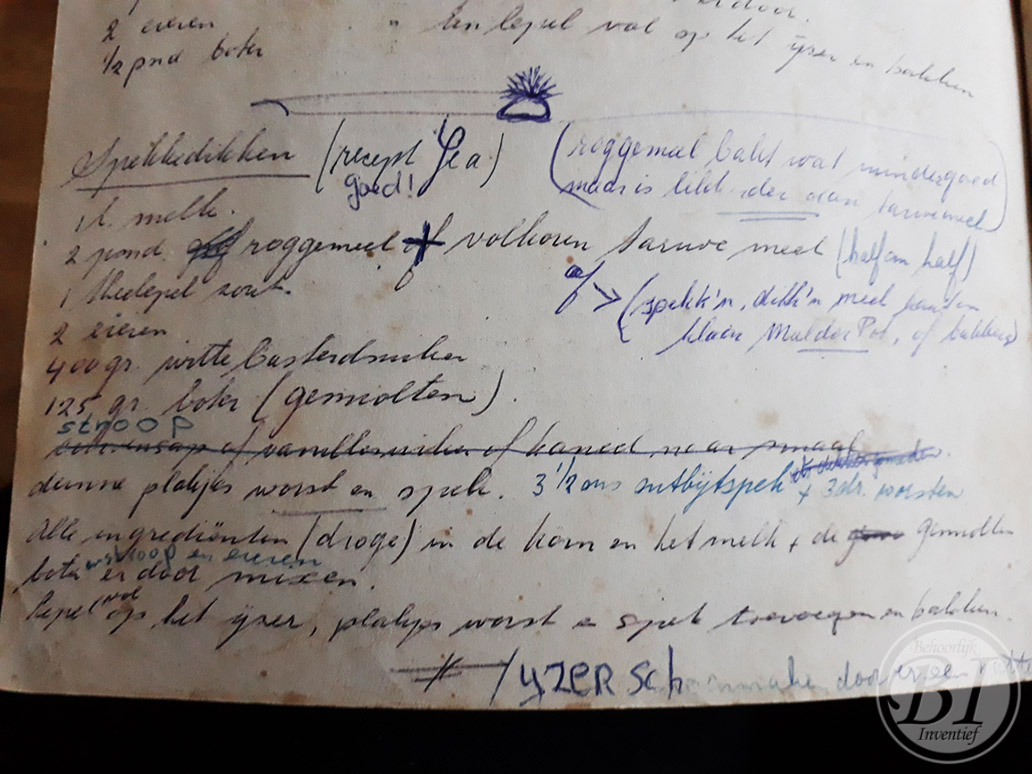 er door.
2 eieren " len lepel vol op het ijzer en bakken
1/2 pond boter
Spekkedikken (recept Gea) (roggemeel bakt wat minder goed
goed! maar is lekkerder dan tarwemeel)
1 l. melk.
2 pond roggemeel of volkoren tarwe meel (half om half)
1 theelepel zout. of > (spekk'n dikk'n meel kant en
2 eieren klaar Mulder Pot, of bakker)
400 gr. witte basterdsuiker
125 gr. boter (gesmolten).
stroop
of vanillesuiker of kaneel naar smaak
dunne plakjes worst en spek. 3 1/2 ons ontbijtspek + 3 dr. worsten
Alle ingrediënten (droge) in de kom en het melk + de gesmolten
boter en stroop en eieren er door mixen.
lepel vol op het ijzer, plakjes worst en spek toevoegen en bakken.
ijzer schoonmaken door er een
Behoorlijk
BI
Inventief